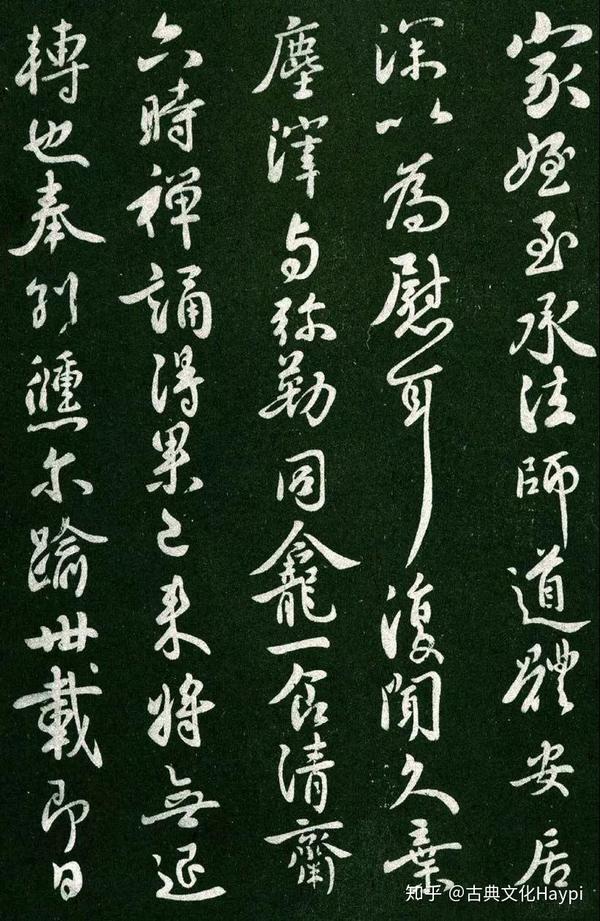 家姪至承法師道體安居
深以為慰耳復聞久棄
塵滓与弥勒同龕一食清齋
六時禅誦得果已来將無退
轉也奉别倐尓踰卅載即日
知乎 @古典文化Haypi